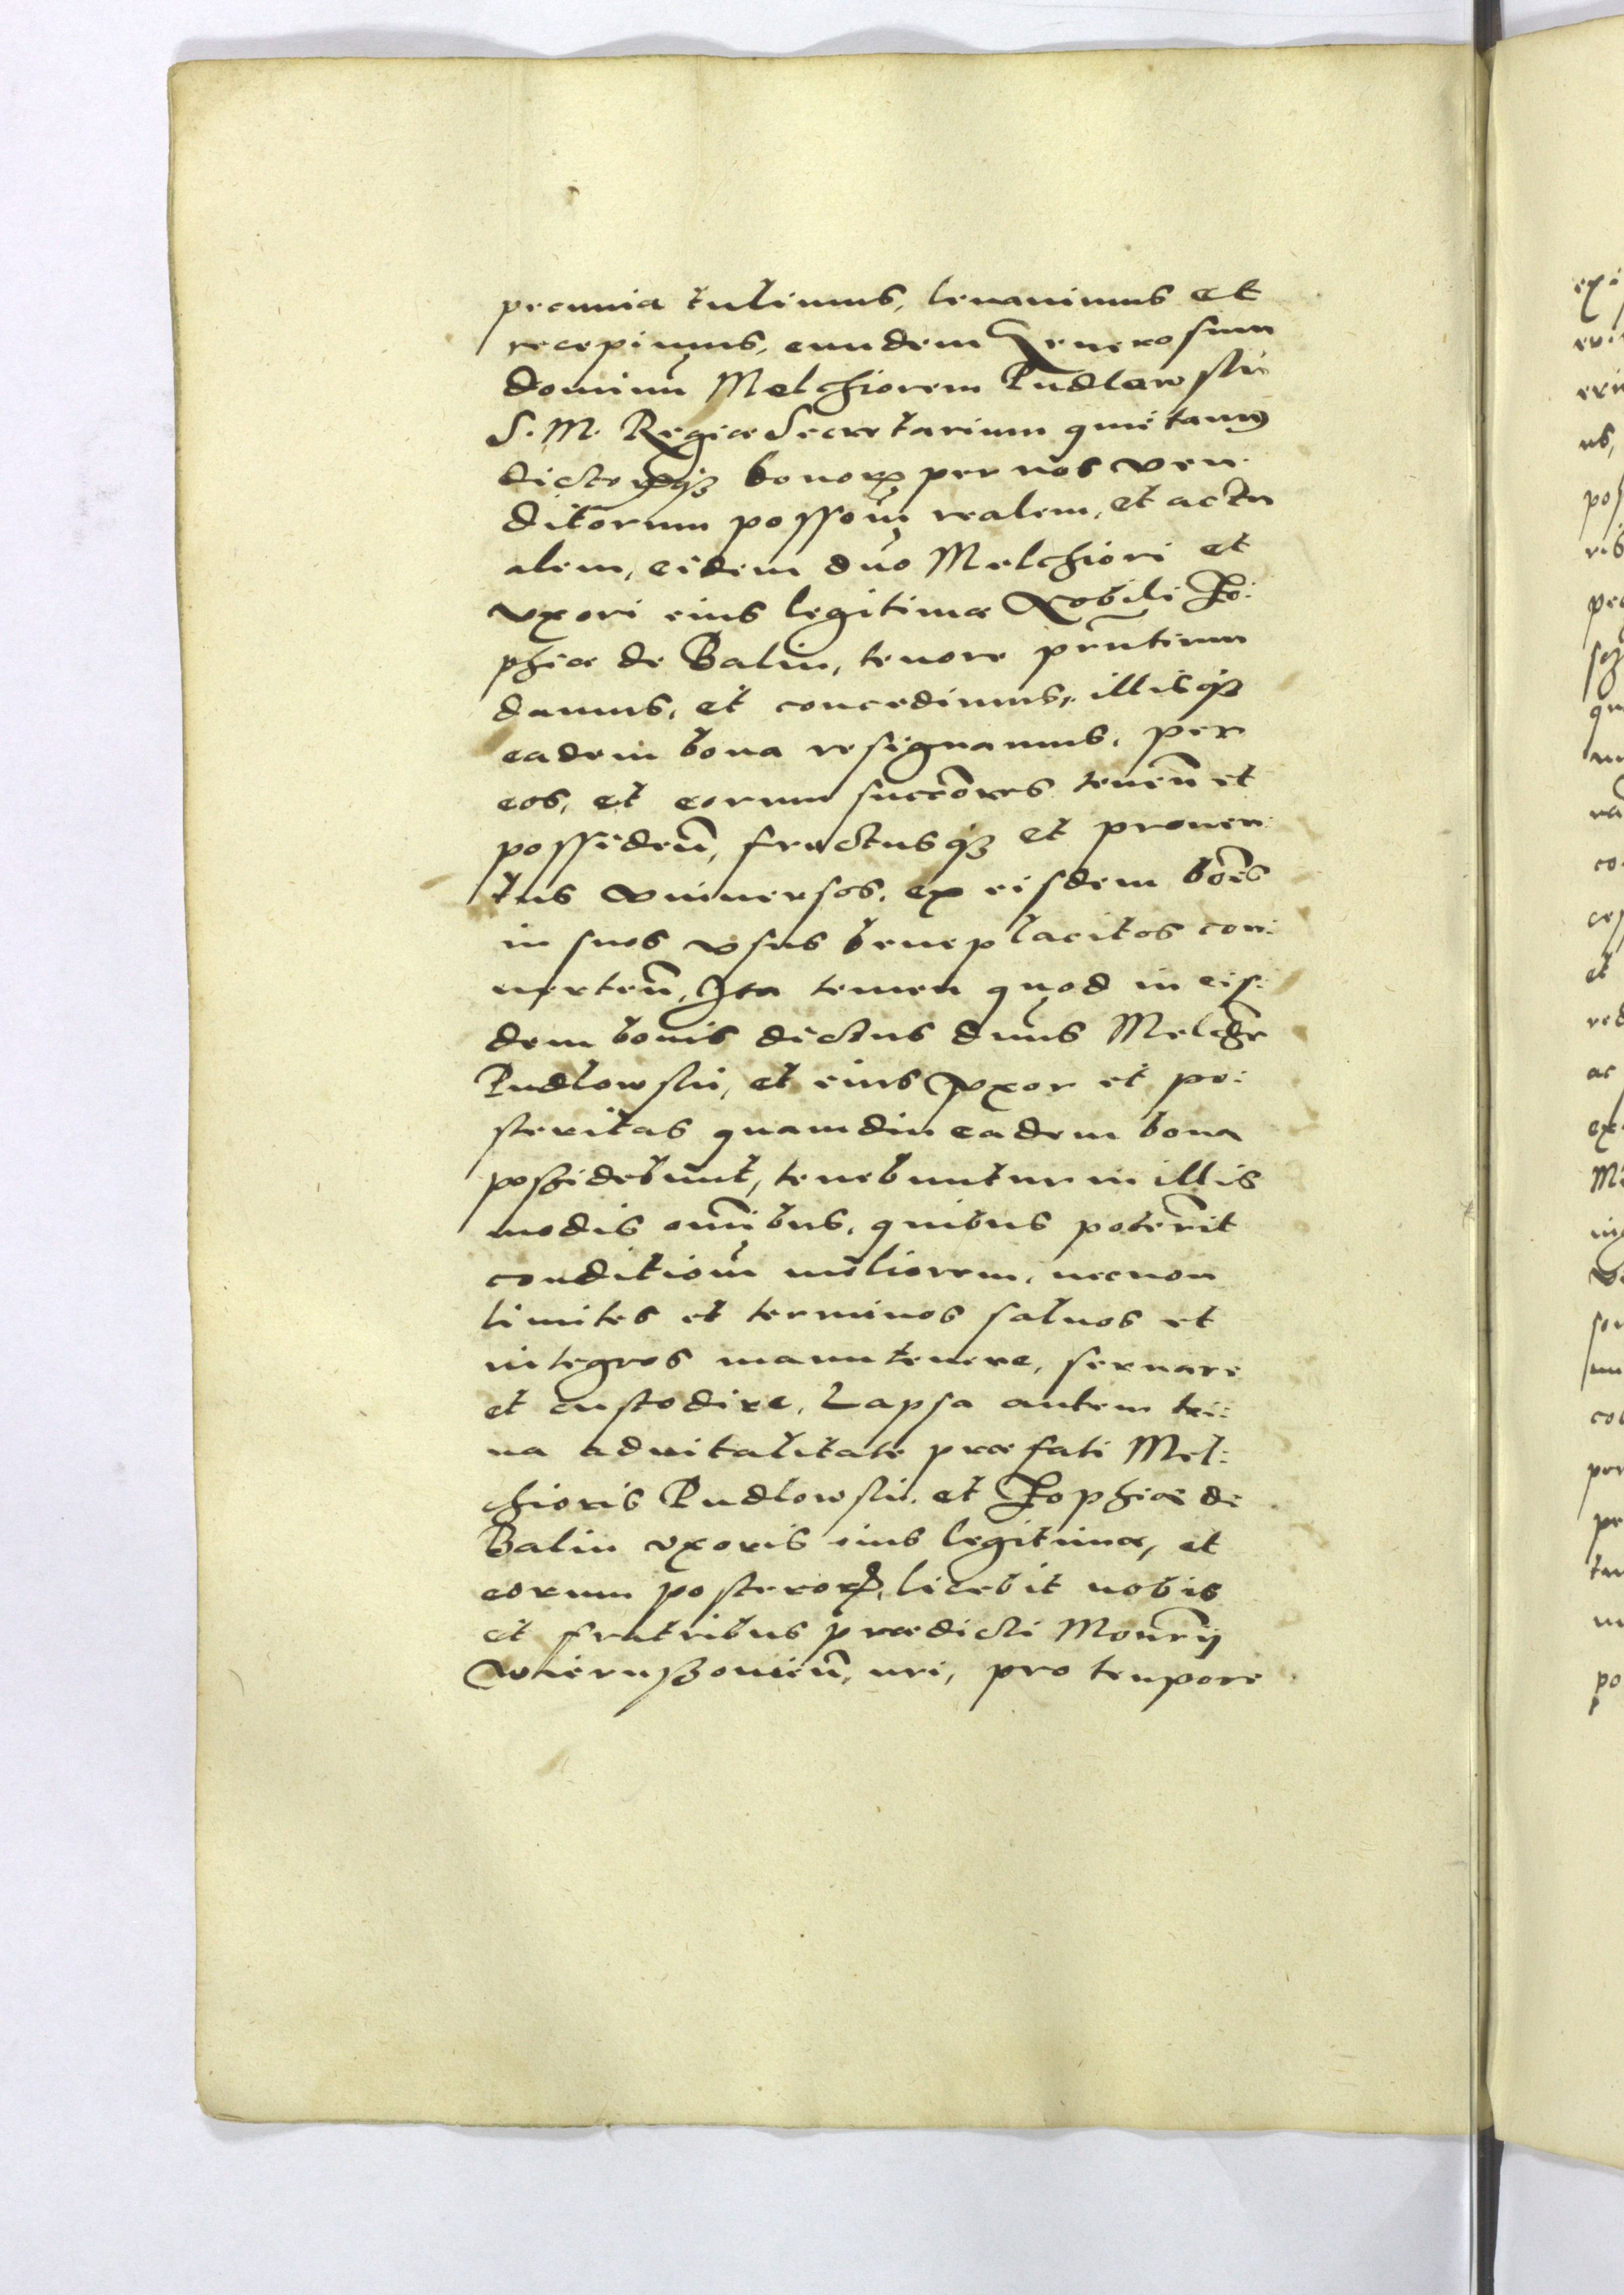 pecunia tulimus, leuauimus et
recepimus, eundem Generosum
dominū Melchiorem Pudlowski
S. M. Regiæ Secretarium quietamꝰ
dictorꝝqꝫ bonorꝝ per nos ven
ditorum possoūį realem, et actu
alem, eidem dño Melchiori et
vxori eius legitimæ Nobili Zo:
phiæ de Balin, tenore pn̄tium
damus, et concedimus, illisqꝫ
eadem bona resignamus, per
eos, et eorum succōres tenen̄ et
possiden̄, fructusqꝫ et prouen:
tus vniuersos, ex eisdem bōis
in suos vsus beneplacitos con:
uerten̄, Ita temen quod in eis:
dem bonis dictus dn̄us Melchr̄
Pudlowski, et eius Vxor et po:
steritas quamdiu eadem bona
possidebunt, tenebuntur in illis
modis om̄ibus, quibus poterīt
conditionē meliorem, necnon
limites et terminos saluos et
integros manutenere, seruare
et custodire, Lapsa autem tri:
na aduitalitate præfati Mel:
chioris Pudlowski, et Zophiæ de
Balin vxoris eius legitimæ, et
eorum posterorꝝ, licebit nobis
et fratribus prædicti Monr̄ij
Wieruszouien̄, nri, pro tempore